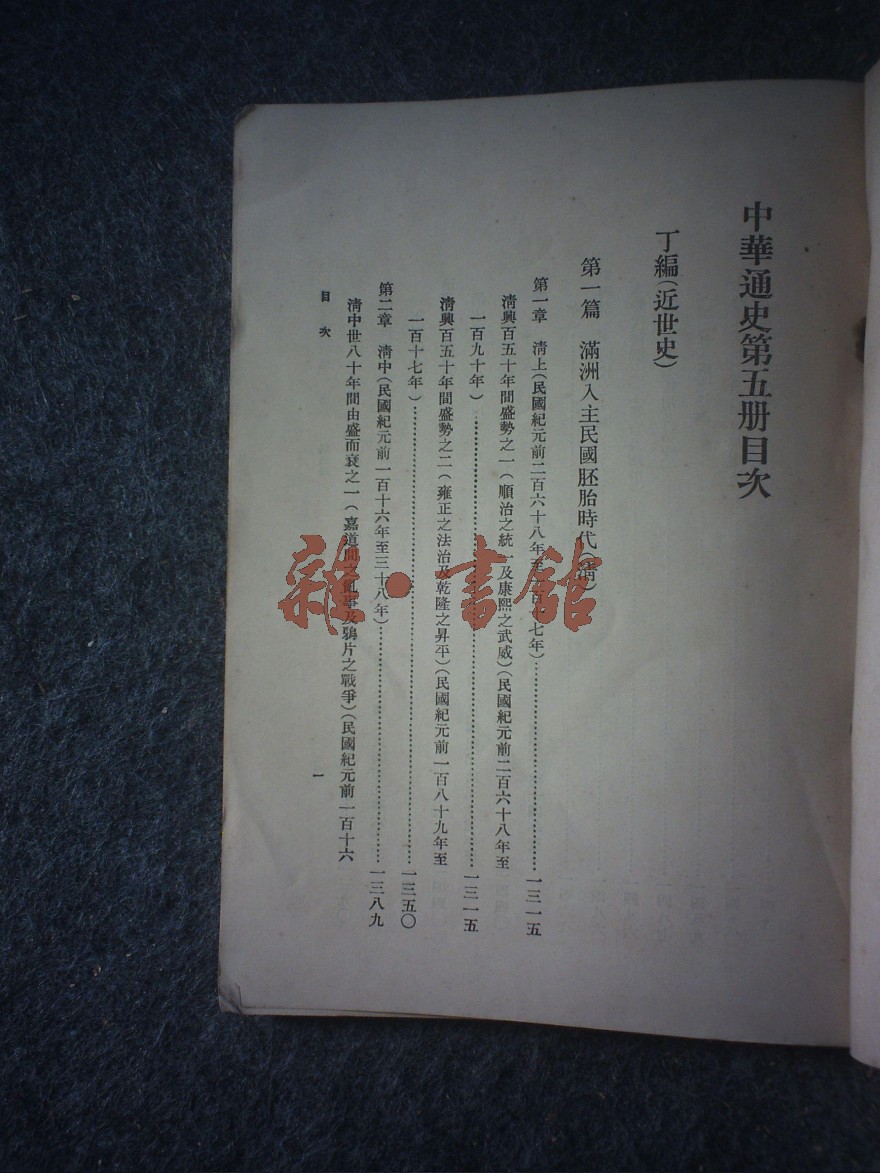 中華通史第五册目次
丁編(近世史)
第一篇 滿洲入主民國胚胎時代(清)
第一章 清上(民國紀元前二百六十八年至一百十七年)……一三一五
清興百五十年間盛勢之一(順治之統一及康熙之武威)(民國紀元前二百六十八年至
一百九十年)……一三一五
清興百五十年間盛勢之二(雍正之法治及乾隆之昇平)(民國紀元前一百八十九年至
一百十七年)……一三五〇
第二章 清中(民國紀元前一百十六年至三十八年)……一三八九
清中世八十年間由盛而衰之一(嘉道間之亂事及鴉片之戰爭)(民國紀元前一百十六
目次
一
雜·書館